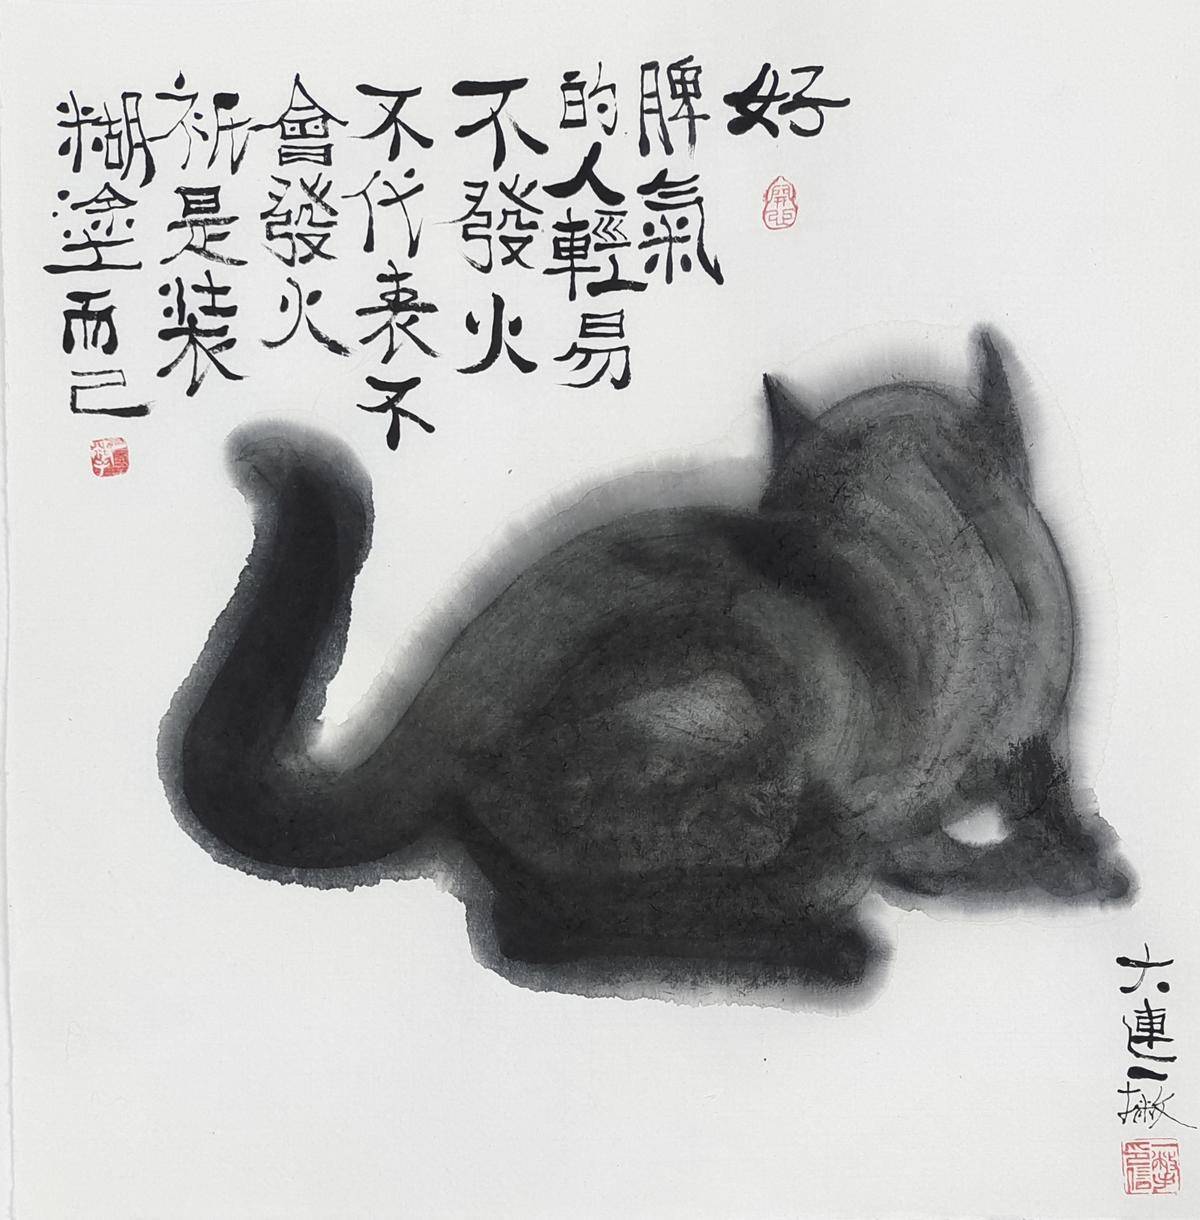 好
脾氣
的人輕易
不發火
不代表不
會發火
祇是裝
糊塗而已
大連一撇